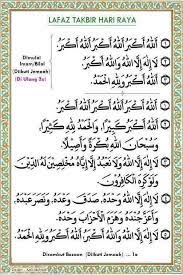 LAFAZ TAKBIR HARI RAYA
Dimulai
Imam/Bilal
(Diikuti Jemaah)
(Di Ulang 3x)
اَللهُ أَكْبَرُ اَللهُ أَكْبَرُ اَللهُ أَكْبَرُ
لَا إِلٰهَ إِلَّا اللهُ وَاللهُ أَكْبَرُ
اَللهُ أَكْبَرُ وَلِلّٰهِ الْحَمْدُ
اَللهُ أَكْبَرُ كَبِيْرًا، وَالْحَمْدُ لِلّٰهِ كَثِيْرًا،
وَسُبْحَانَ اللهِ بُكْرَةً وَأَصِيْلًا
لَا إِلٰهَ إِلَّا اللهُ وَلَا نَعْبُدُ إِلَّا إِيَّاهُ مُخْلِصِيْنَ لَهُ الدِّيْنَ
وَلَوْ كَرِهَ الْكَافِرُوْنَ
لَا إِلٰهَ إِلَّا اللهُ وَحْدَهُ، صَدَقَ وَعْدَهُ، وَنَصَرَ عَبْدَهُ،
وَأَعَزَّ جُنْدَهُ وَهَزَمَ الْأَحْزَابَ وَحْدَهُ
لَا إِلٰهَ إِلَّا اللهُ وَاللهُ أَكْبَرُ اَللهُ أَكْبَرُ وَلِلّٰهِ الْحَمْدُ
(Diikuti Jemaah) ... 1x